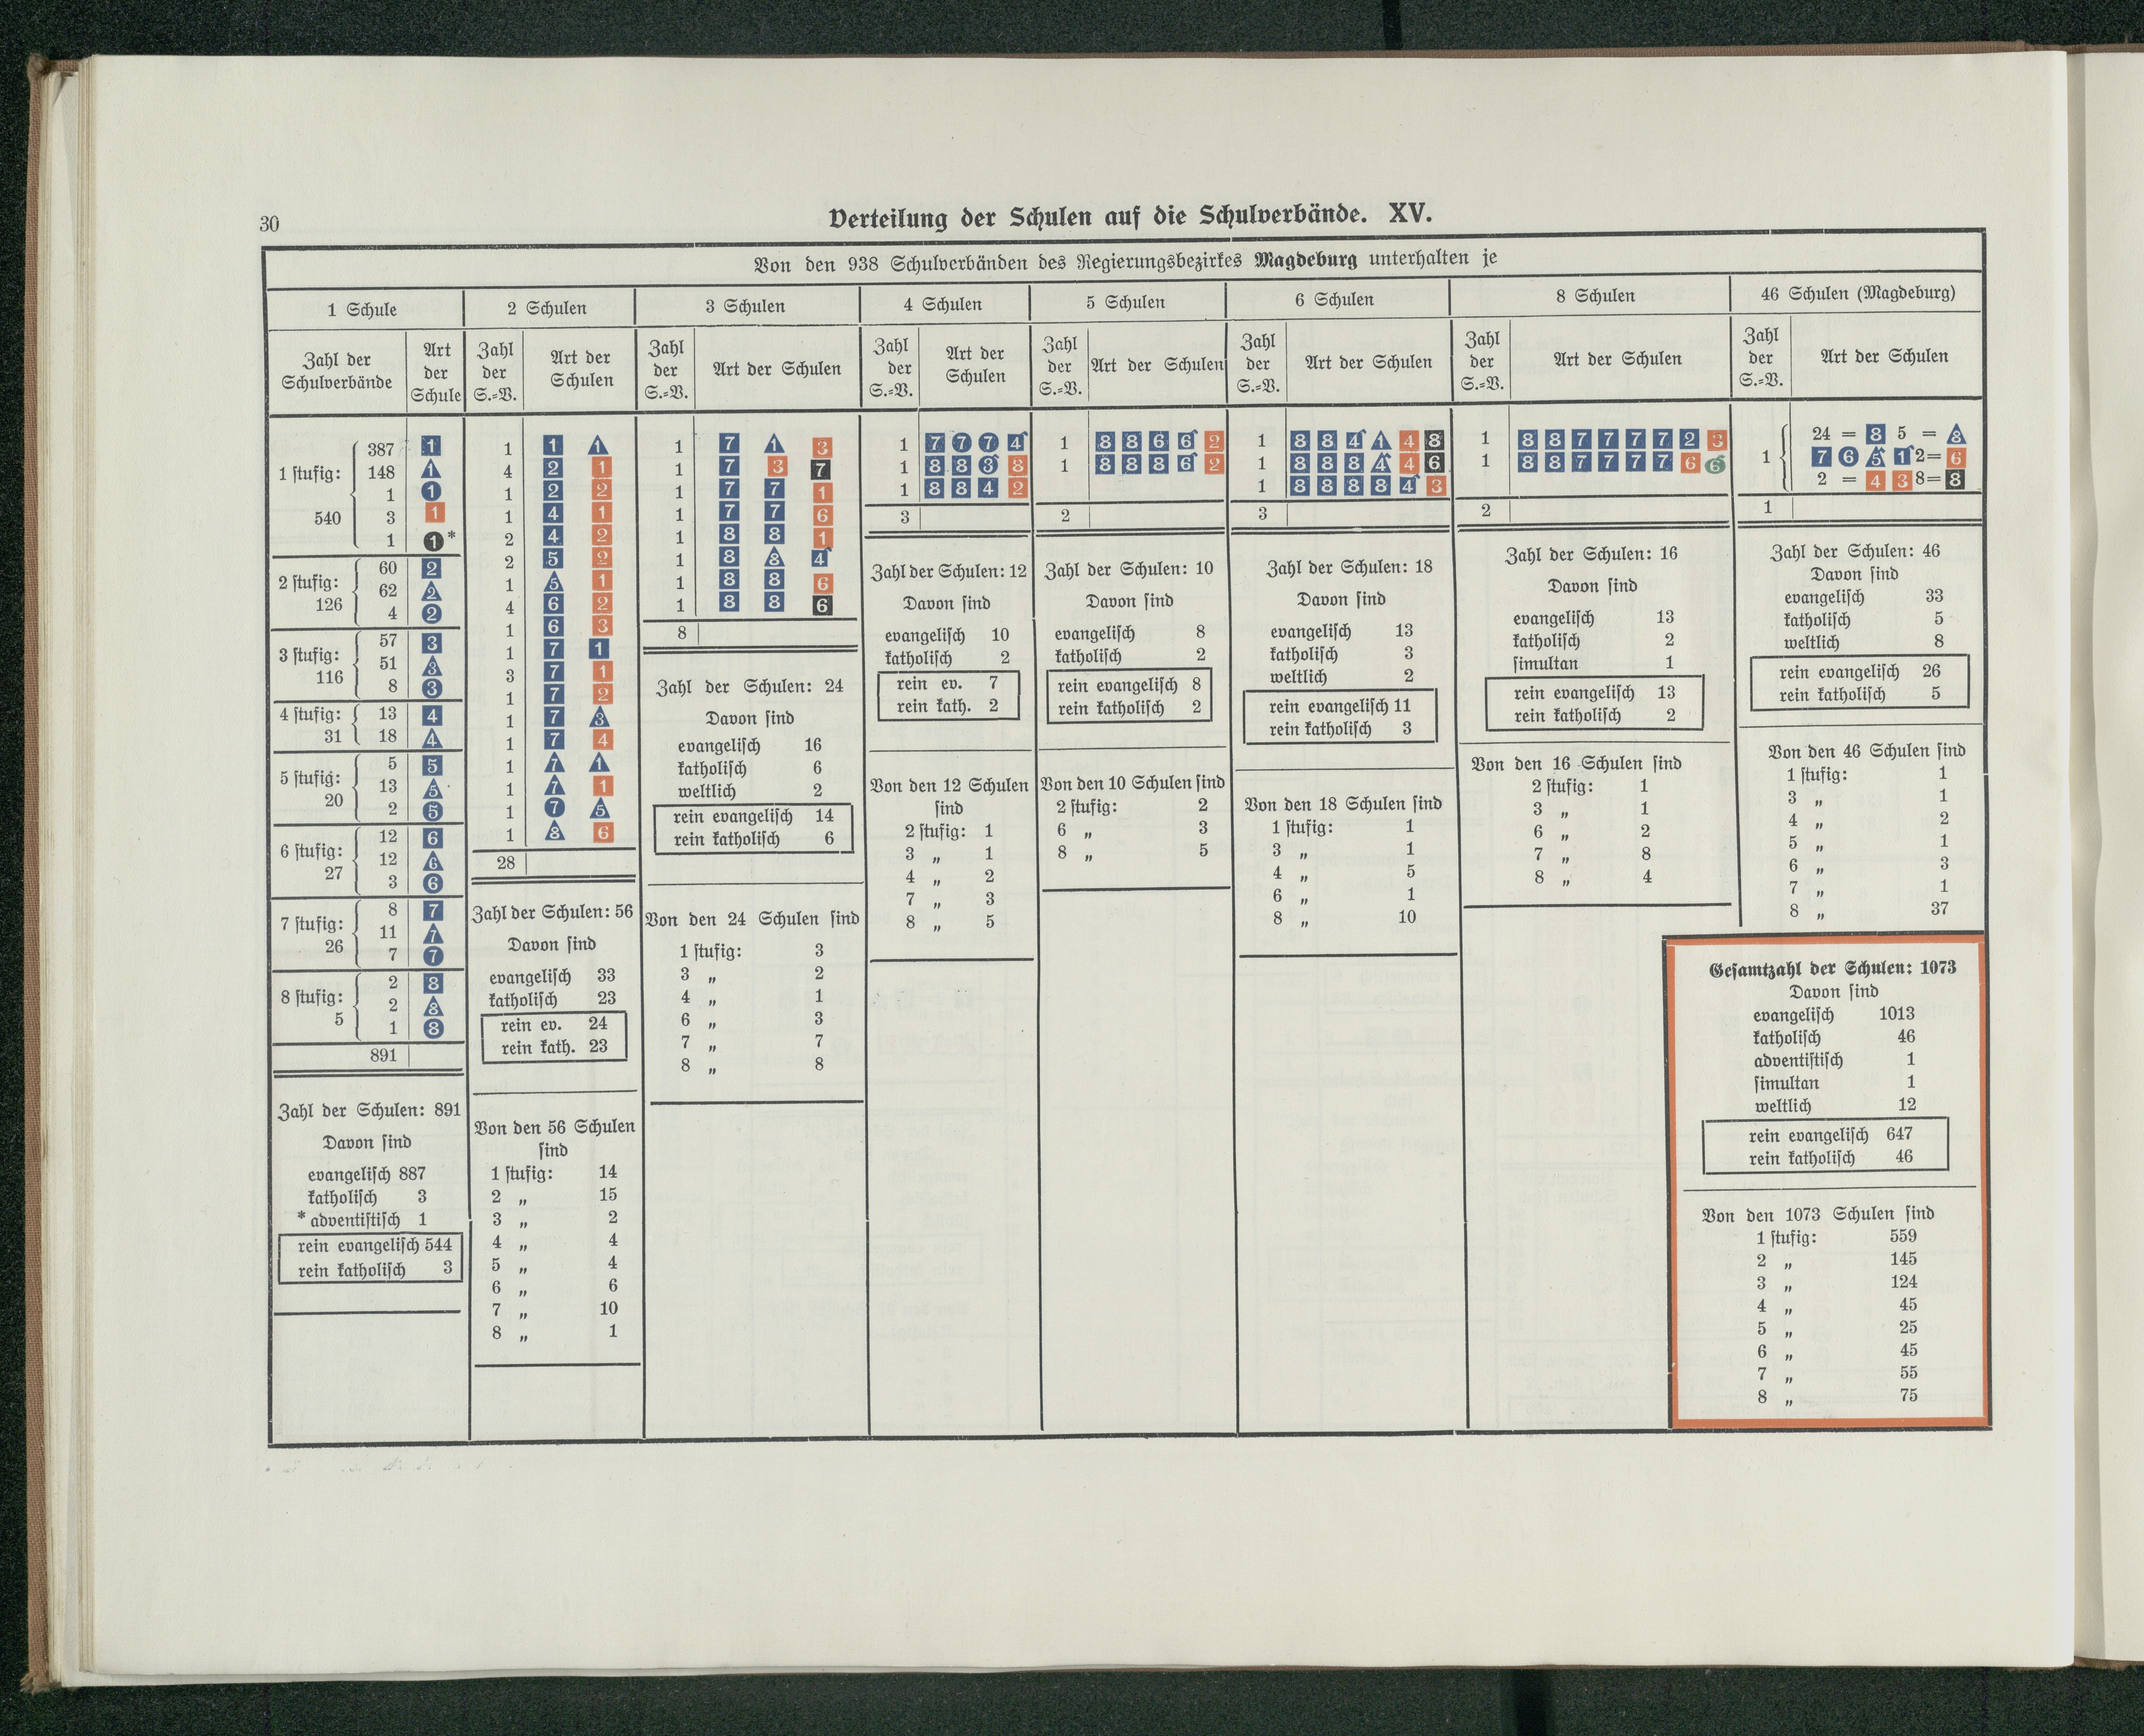 30
Verteilung der Schulen auf die Schulverbände. XV.
Von den 938 Schulverbänden des Regierungsbezirkes Magdeburg unterhalten je
1 Schule
Zahl der Schulverbände
Art der Schule
1 stufig: 540
387 1
148 1
1 1
3 1
1 1*
2 stufig: 126
60 2
62 2
4 2
3 stufig: 116
57 3
51 3
8 3
4 stufig: 31
13 4
18 4
5 stufig: 20
5 5
13 5
2 5
6 stufig: 27
12 6
12 6
3 6
7 stufig: 26
8 7
11 7
7 7
8 stufig: 5
2 8
2 8
1 8
891
Zahl der Schulen: 891
Davon sind
evangelisch 887
katholisch 3
* adventistisch 1
rein evangelisch 544
rein katholisch 3
2 Schulen
Zahl der S.=V.
Art der Schulen
1 1 1
4 2 1
1 2 2
1 4 1
2 4 2
2 5 2
1 5 1
4 6 2
1 6 3
1 7 1
3 7 1
1 7 2
1 7 3
1 7 4
1 7 1
1 7 1
1 7 5
1 8 6
28
Zahl der Schulen: 56
Davon sind
evangelisch 33
katholisch 23
rein ev. 24
rein kath. 23
Von den 56 Schulen
sind
1 stufig: 14
2 „ 15
3 „ 2
4 „ 4
5 „ 4
6 „ 6
7 „ 10
8 „ 1
3 Schulen
Zahl der S.=V.
Art der Schulen
1 7 1 3
1 7 3 7
1 7 7 1
1 7 7 6
1 8 8 1
1 8 8 4
1 8 8 6
1 8 8 6
8
Zahl der Schulen: 24
Davon sind
evangelisch 16
katholisch 6
weltlich 2
rein evangelisch 14
rein katholisch 6
Von den 24 Schulen sind
1 stufig: 3
3 „ 2
4 „ 1
6 „ 3
7 „ 7
8 „ 8
4 Schulen
Zahl der S.=V.
Art der Schulen
1 7 7 7 4
1 8 8 3 8
1 8 8 4 2
3
Zahl der Schulen: 12
Davon sind
evangelisch 10
katholisch 2
rein ev. 7
rein kath. 2
Von den 12 Schulen
sind
2 stufig: 1
3 „ 1
4 „ 2
7 „ 3
8 „ 5
5 Schulen
Zahl der S.=V.
Art der Schulen
1 8 8 6 6 2
1 8 8 8 6 2
2
Zahl der Schulen: 10
Davon sind
evangelisch 8
katholisch 2
rein evangelisch 8
rein katholisch 2
Von den 10 Schulen sind
2 stufig: 2
6 „ 3
8 „ 5
6 Schulen
Zahl der S.=V.
Art der Schulen
1 8 8 4 1 4 8
1 8 8 8 4 4 6
1 8 8 8 8 4 3
3
Zahl der Schulen: 18
Davon sind
evangelisch 13
katholisch 3
weltlich 2
rein evangelisch 11
rein katholisch 3
Von den 18 Schulen sind
1 stufig: 1
3 „ 1
4 „ 5
6 „ 1
8 „ 10
8 Schulen
Zahl der S.=V.
Art der Schulen
1 8 8 7 7 7 7 2 3
1 8 8 7 7 7 7 6 6
2
Zahl der Schulen: 16
Davon sind
evangelisch 13
katholisch 2
simultan 1
rein evangelisch 13
rein katholisch 2
Von den 16 Schulen sind
2 stufig: 1
3 „ 1
6 „ 2
7 „ 8
8 „ 4
46 Schulen (Magdeburg)
Zahl der S.=V.
Art der Schulen
24 = 8 5 = 8
1 7 6 5 1 2 = 6
2 = 4 3 8 = 8
1
Zahl der Schulen: 46
Davon sind
evangelisch 33
katholisch 5
weltlich 8
rein evangelisch 26
rein katholisch 5
Von den 46 Schulen sind
1 stufig: 1
3 „ 1
4 „ 2
5 „ 1
6 „ 3
7 „ 1
8 „ 37
Gesamtzahl der Schulen: 1073
Davon sind
evangelisch 1013
katholisch 46
adventistisch 1
simultan 1
weltlich 12
rein evangelisch 647
rein katholisch 46
Von den 1073 Schulen sind
1 stufig: 559
2 „ 145
3 „ 124
4 „ 45
5 „ 25
6 „ 45
7 „ 55
8 „ 75